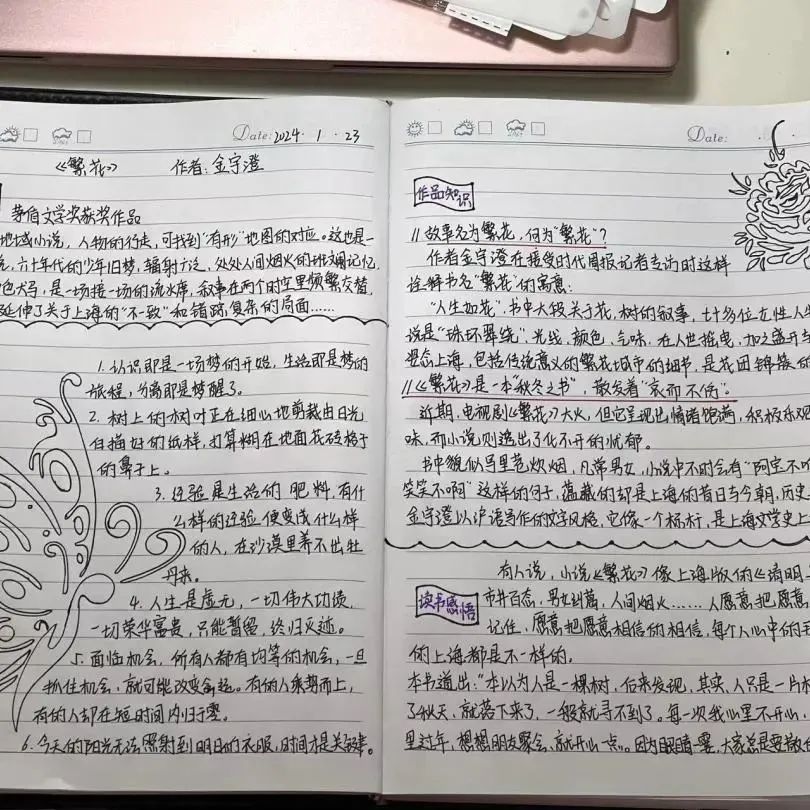 Date: 2024. 1. 23
《繁花》 作者:金宇澄
茅盾文学奖获奖作品
地域小说,人物的行走,可找到"有形"地图的对应。这也是一
六十年代的少年旧梦,辐射广泛,处处人间烟火的斑斓记忆
色犬马,是一场接一场的流水席,叙事在两个时空里频繁交替
延伸了关于上海的"不一致"和错踪复杂的局面……
1. 认识即是一场梦的开始,生活即是梦的
旅程,分离即是梦醒了。
2. 树上的树叶正在细心地剪裁由日光
白描好的纸样,打算糊在地面花砖格子
的鼻子上。
3. 经验是生活的肥料,有什
么样的经验便变成什么样
的人,在沙漠里养不出牡
丹来。
4. 人生是虚无,一切伟大功绩,
一切荣华富贵,只能暂留,终归灭迹。
5. 面临机会,所有人都有均等的机会,一旦
抓住机会,就可能改变命运。有的人乘势而上,
有的人却在短时间内归于零。
6. 今天的阳光无法照射到明日的衣服,时间才是关键。
Date:
作品知识
// 故事名为繁花,何为"繁花"?
作者金宇澄在接受时代周报记者专访时这样
诠解书名"繁花"的寓意:
"人生如花",书中大段关于花,树的叙事,十多位女性人
说是"珠环翠绕",光线,颜色,气味,在人世摇曳,加之盛开
湿态上海,包括传统意义的繁花城市的细节,是花团锦簇的
//《繁花》是一本"秋冬之书",散发着"哀而不伤"。
近期,电视剧《繁花》大火,但它呈现出情绪饱满,积极乐观
味,而小说则透出了化不开的忧郁。
书中貌似写里巷炊烟,凡常男女,小说中不时会有"阿宝不响
笑笑不响"这样的句子,蕴藏的却是上海的昔日与今朝,历史
金宇澄以沪语写作的文字风格,它像一个标杆,是上海文学史上
读书感悟
有人说,小说《繁花》像上海版的《清明上
市井百态,男女纠葛,人间烟火……人愿意把愿意
记住,愿意把愿意相信的相信,每个人心中的
的上海都是不一样的,
本书道出:"本以为人是一棵树,后来发现,其实,人只是一片
了秋天,就落下来了,一般就寻不到了。每一次我心里不开心,
里过年,想想朋友聚会,就开心一点。因为眼睛一霎,大家总是要散